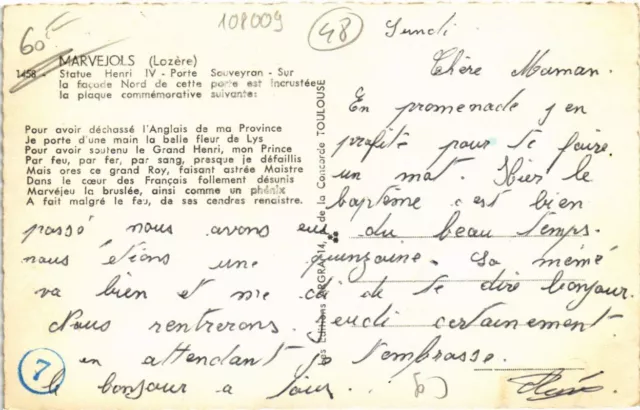 60F
108009
48
MARVEJOLS (Lozère)
1458 - Statue Henri IV - Porte Souveyran - Sur
la façade Nord de cette porte est incrustée
la plaque commémorative suivante:
Pour avoir déchassé l'Anglais de ma Province
Je porte d'une main la belle fleur de Lys
Pour avoir soutenu le Grand Henri, mon Prince
Par feu, par fer, par sang, presque je défaillis
Mais ores ce grand Roy, faisant astrée Maistre
Dans le cœur des Français follement désunis
Marvéjeu la bruslée, ainsi comme un phénix
A fait malgré le feu, de ses cendres renaistre.
Les Editions de la Concorde TOULOUSE
Lundi
Chère Maman.
En promenade j'en
profite pour te faire
un mot. Hier le
baptême c'est bien
passé nous avons eu du beau temps.
nous étions une quinzaine. La mémé
va bien et me de te dire bonjour.
Nous rentrerons jeudi certainement
en attendant je t'embrasse.
le bonjour a
7